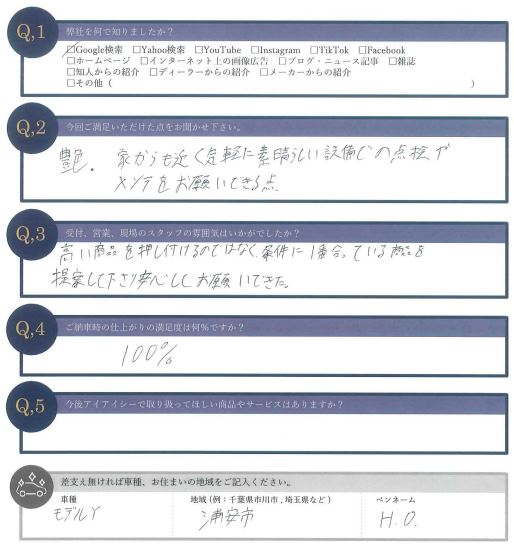 Q,1
弊社を何で知りましたか？
□Google検索 □Yahoo検索 □YouTube □Instagram □TikTok □Facebook
□ホームページ □インターネット上の画像広告 □ブログ・ニュース記事 □雑誌
□知人からの紹介 □ディーラーからの紹介 □メーカーからの紹介
□その他（ ）
Q,2
今回ご満足いただけた点をお聞かせ下さい。
艶。家からも近く気軽に素晴らしい設備での点検や
メンテをお願いできる点
Q,3
受付、営業、現場のスタッフの雰囲気はいかがでしたか？
高い商品を押し付けるのではなく条件に1番合っている商品を
提案して下さり安心してお願いできた。
Q,4
ご納車時の仕上がりの満足度は何％ですか？
100%
Q,5
今後アイアイシーで取り扱ってほしい商品やサービスはありますか？
差支え無ければ車種、お住まいの地域をご記入ください。
車種 地域（例：千葉県市川市，埼玉県など） ペンネーム
モデルY 浦安市 H.O.